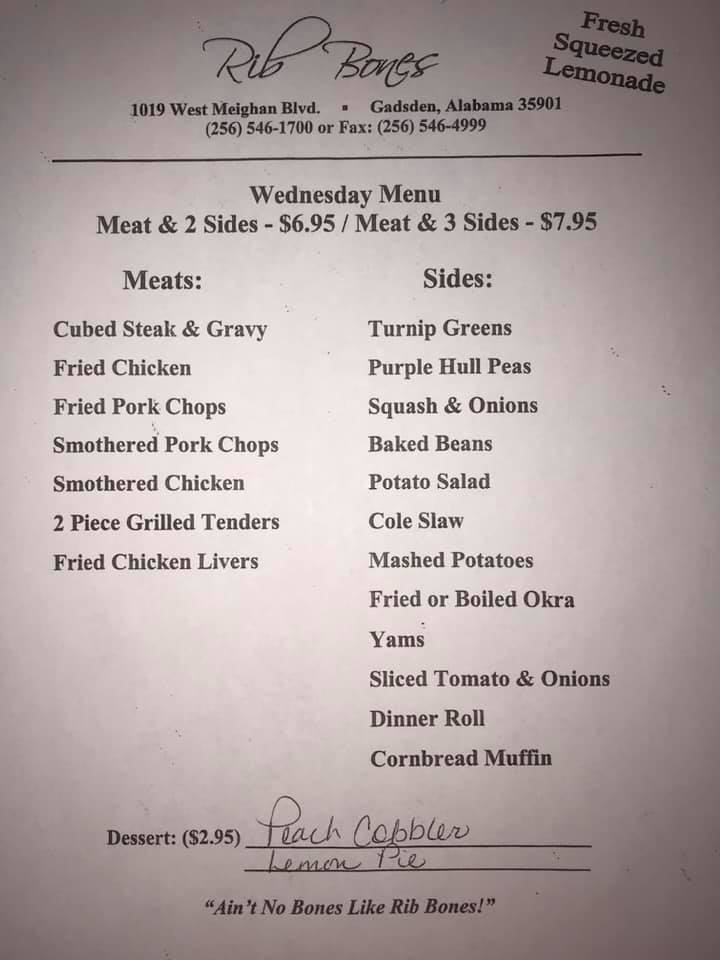 Rib Bones
Fresh
Squeezed
Lemonade
1019 West Meighan Blvd. ▪ Gadsden, Alabama 35901
(256) 546-1700 or Fax: (256) 546-4999
Wednesday Menu
Meat & 2 Sides - $6.95 / Meat & 3 Sides - $7.95
Meats:
Cubed Steak & Gravy
Fried Chicken
Fried Pork Chops
Smothered Pork Chops
Smothered Chicken
2 Piece Grilled Tenders
Fried Chicken Livers
Sides:
Turnip Greens
Purple Hull Peas
Squash & Onions
Baked Beans
Potato Salad
Cole Slaw
Mashed Potatoes
Fried or Boiled Okra
Yams
Sliced Tomato & Onions
Dinner Roll
Cornbread Muffin
Dessert: ($2.95) Peach Cobbler
Lemon Pie
“Ain’t No Bones Like Rib Bones!”